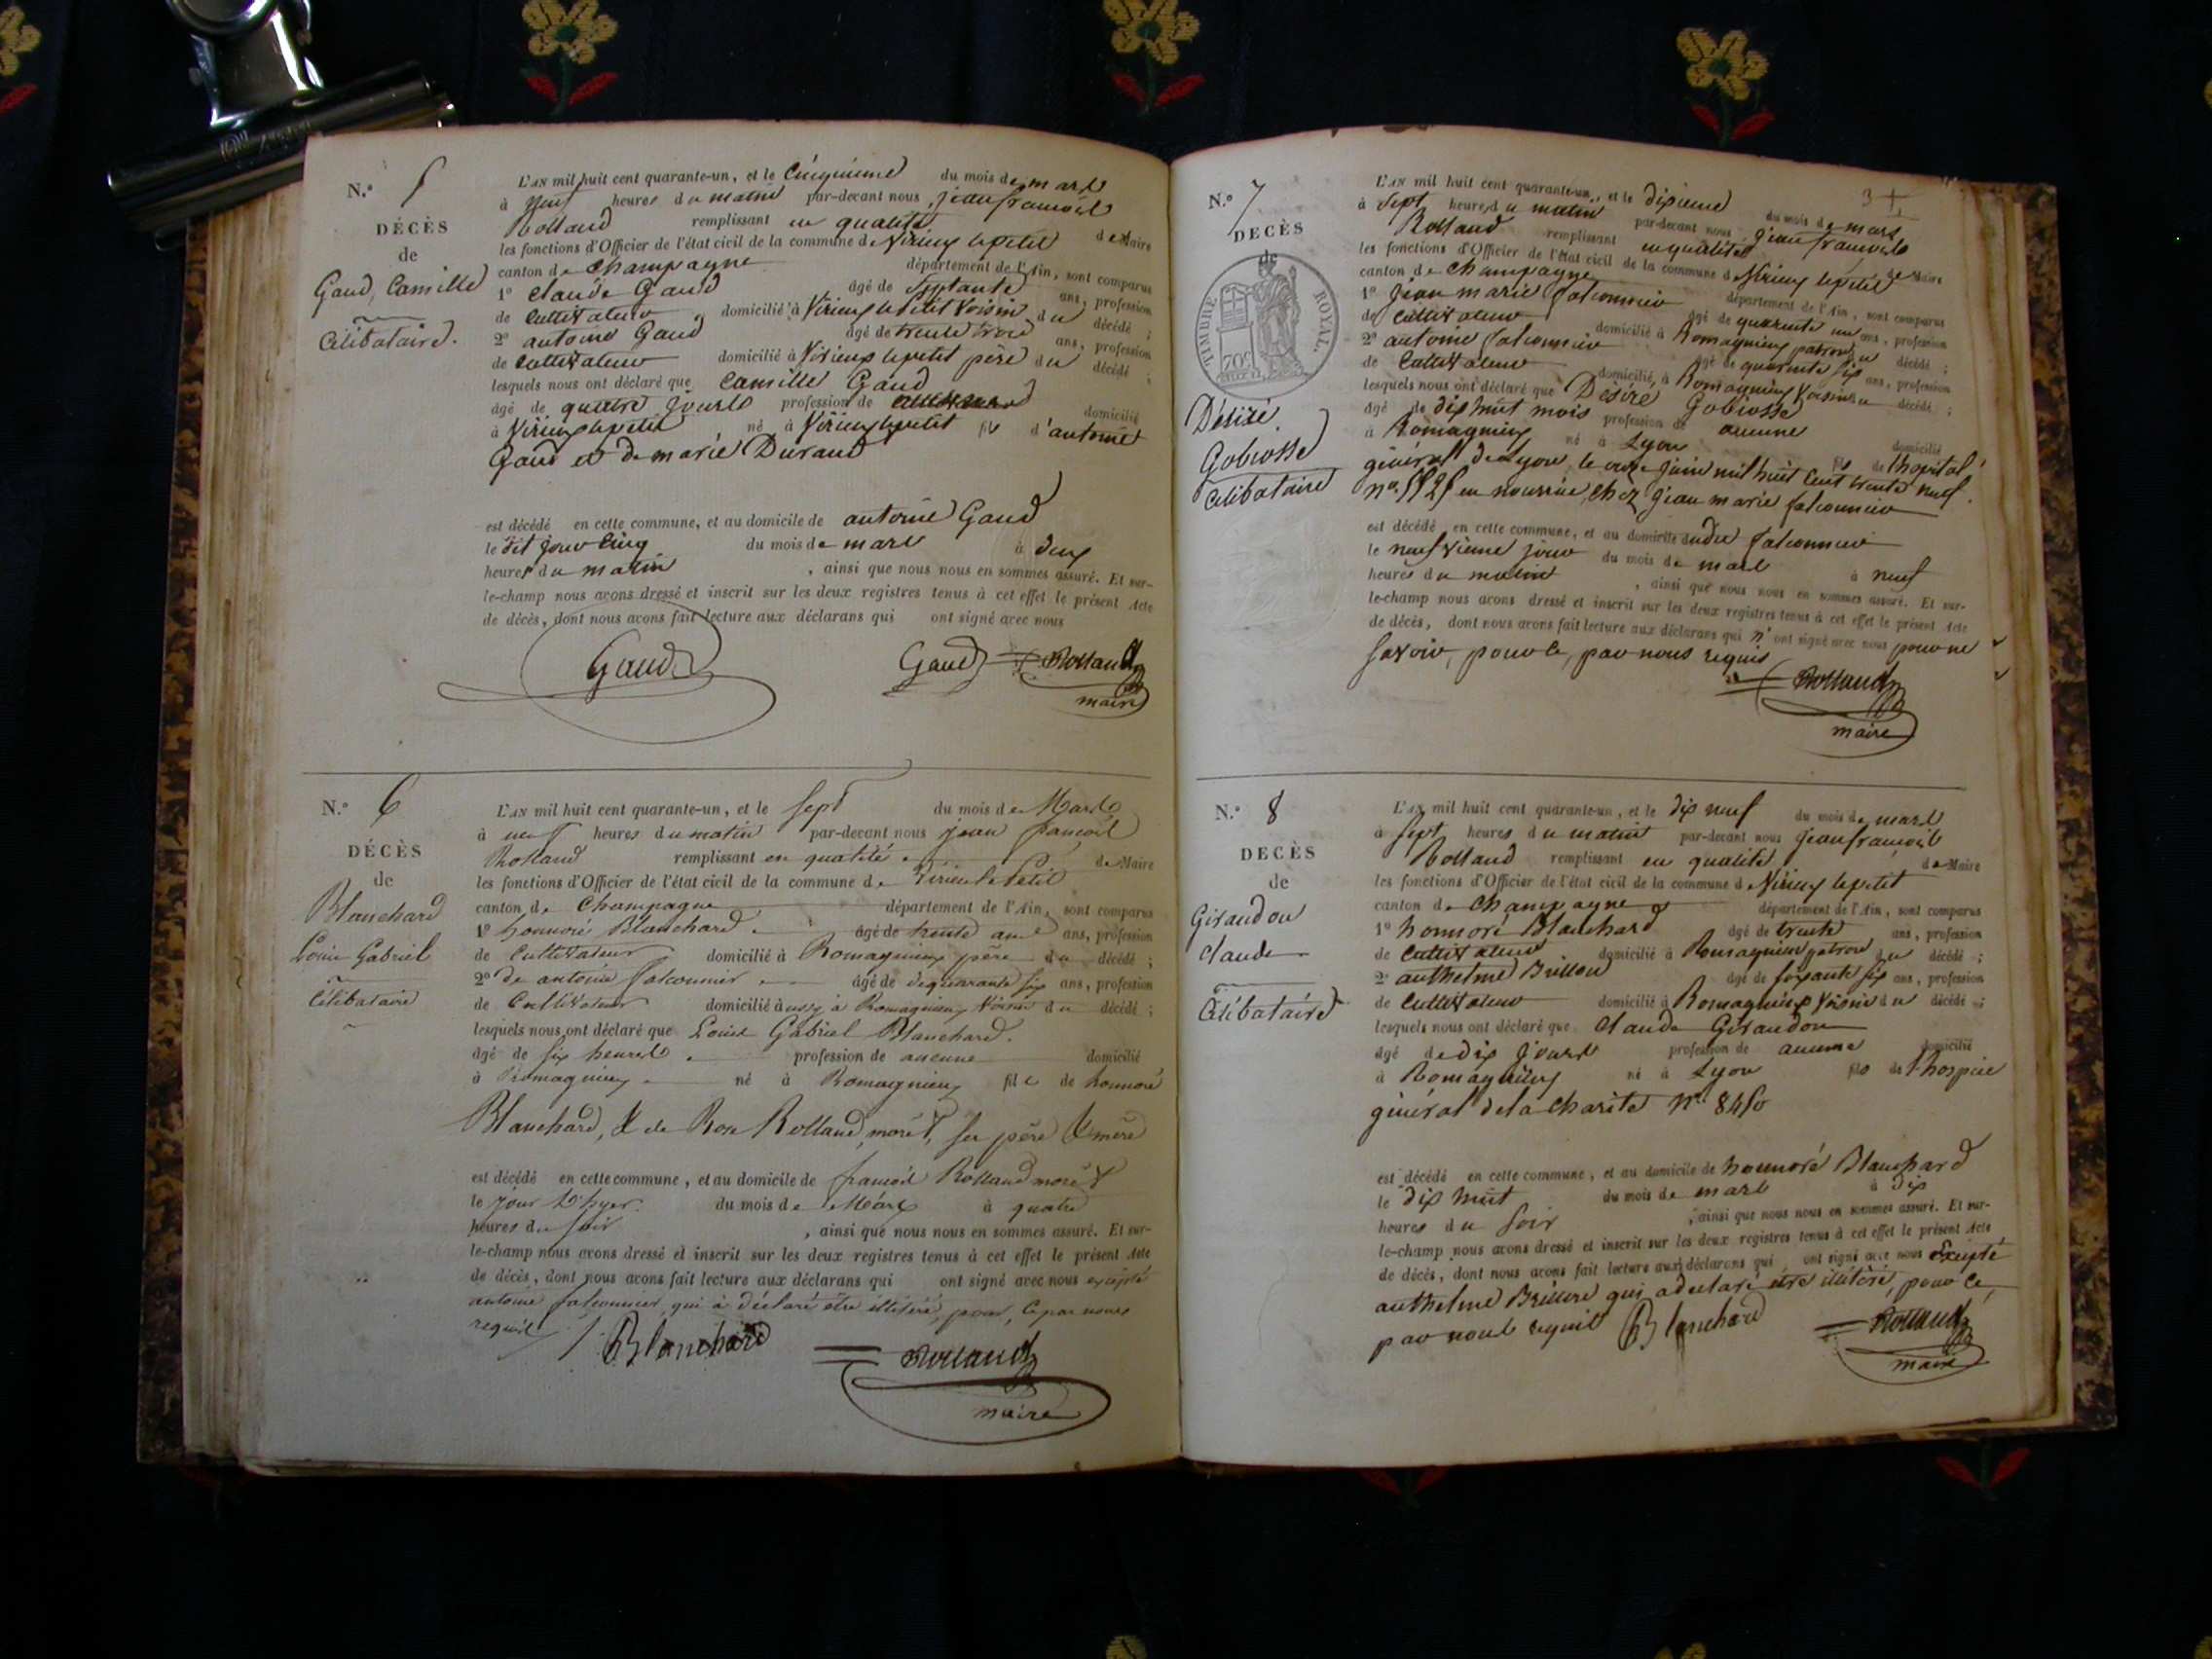 N.º 5
DÉCÈS
de
Gaud, Camille
Célibataire.
L'AN mil huit cent quarante-un, et le Cinquième du mois de mars
à neuf heures du matin par-devant nous jean françois
Rolland remplissant en qualité de Maire
les fonctions d'Officier de l'état civil de la commune de Virieux le petit
canton de Champagne département de l'Ain, sont comparus
1º Claude Gaud âgé de Septante ans, profession
de Cultivateur domicilié à Virieux le petit Voisin du décédé ;
2º antoine Gaud âgé de trente trois ans, profession
de Cultivateur domicilié à Virieux le petit père du décédé ;
lesquels nous ont déclaré que Camille Gaud
âgé de quatre jours profession de domicilié
à Virieux le petit né à Virieux le petit fils d'antoine
Gaud et de marie Durand
est décédé en cette commune, et au domicile de antoine Gaud
le dit jour Cinq du mois de mars à deux
heures du matin , ainsi que nous nous en sommes assuré. Et sur-
le-champ nous avons dressé et inscrit sur les deux registres tenus à cet effet le présent Acte
de décès, dont nous avons fait lecture aux déclarans qui ont signé avec nous
Gaud Gaud Rolland
maire
N.º 6
DÉCÈS
de
Blanchard
Louis Gabriel
Célibataire
L'AN mil huit cent quarante-un, et le sept du mois de Mars
à neuf heures du matin par-devant nous jean françois
Rolland remplissant en qualité de Maire
les fonctions d'Officier de l'état civil de la commune de Virieu le Petit
canton de Champagne département de l'Ain, sont comparus
1º honnoré Blanchard âgé de trente ans, profession
de Cultivateur domicilié à Romagnieux père du décédé ;
2º de antoine falconnier âgé de dequarante six ans, profession
de Cultivateur domicilié aussy à Romagnieux Voisin du décédé ;
lesquels nous ont déclaré que Louis Gabriel Blanchard.
âgé de six heures profession de aucune domicilié
à Romagnieux né à Romagnieux fils de honnoré
Blanchard, & de Rose Rolland moret, ses père & mère
est décédé en cette commune, et au domicile de françois Rolland moret
le jour d'hyer. du mois de Mars à quatre
heures du soir , ainsi que nous nous en sommes assuré. Et sur-
le-champ nous avons dressé et inscrit sur les deux registres tenus à cet effet le présent Acte
de décès, dont nous avons fait lecture aux déclarans qui ont signé avec nous excepté
antoine falconnier qui à déclaré être illitéré, pour, ce par nous
requis
Blanchard Rolland
maire
3
N.º 7
DÉCÈS
de
TIMBRE ROYAL.
70c
Désiré
Gobiosse
Célibataire
L'AN mil huit cent quarante-un, et le dixième du mois de mars
à sept heures du matin par-devant nous jean françois
Rolland remplissant en qualité de Maire
les fonctions d'Officier de l'état civil de la commune de Virieux le petit
canton de Champagne département de l'Ain, sont comparus
1º jean marie falconnier âgé de quarante un ans, profession
de Cultivateur domicilié à Romagnieux patron du décédé ;
2º antoine falconnier âgé de quarante six ans, profession
de Cultivateur domicilié à Romagnieux Voisin du décédé ;
lesquels nous ont déclaré que Désiré Gobiosse
âgé de dix huit mois profession de aucune domicilié
à Romagnieux né à Lyon fils de l'hopital
général de Lyon, le onze juin mil huit Cent trente neuf.
nº. 5525 en nourrice, chez jean marie falconnier
est décédé en cette commune, et au domicile dudit falconnier
le neufvieme jour du mois de mars à neuf
heures du matin , ainsi que nous nous en sommes assuré. Et sur-
le-champ nous avons dressé et inscrit sur les deux registres tenus à cet effet le présent Acte
de décès, dont nous avons fait lecture aux déclarans qui n'ont signé avec nous pour ne
savoir, pour ce, par nous requis
Rolland
maire
N.º 8
DÉCÈS
de
Giraudon
Claude
Célibataire
L'AN mil huit cent quarante-un, et le dix neuf du mois de mars
à sept heures du matin par-devant nous jean françois
Rolland remplissant en qualité de Maire
les fonctions d'Officier de l'état civil de la commune de Virieux le petit
canton de Champagne département de l'Ain, sont comparus
1º honnoré Blanchard âgé de trente ans, profession
de Cultivateur domicilié à Romagnieux patron du décédé ;
2º anthelme Brillon âgé de soixante six ans, profession
de Cultivateur domicilié à Romagnieux Voisin du décédé ;
lesquels nous ont déclaré que Claude Giraudon
âgé de dix jours profession de aucune domicilié
à Romagnieux né à Lyon fils de l'hospice
général de la Charité nº. 8450
est décédé en cette commune, et au domicile de honnoré Blanchard
le dix huit du mois de mars à dix
heures du soir , ainsi que nous nous en sommes assuré. Et sur-
le-champ nous avons dressé et inscrit sur les deux registres tenus à cet effet le présent Acte
de décès, dont nous avons fait lecture aux déclarans qui ont signé avec nous Excepté
anthelme qui a déclaré être illitéré, pour ce,
par nous requis Blanchard Rolland
maire